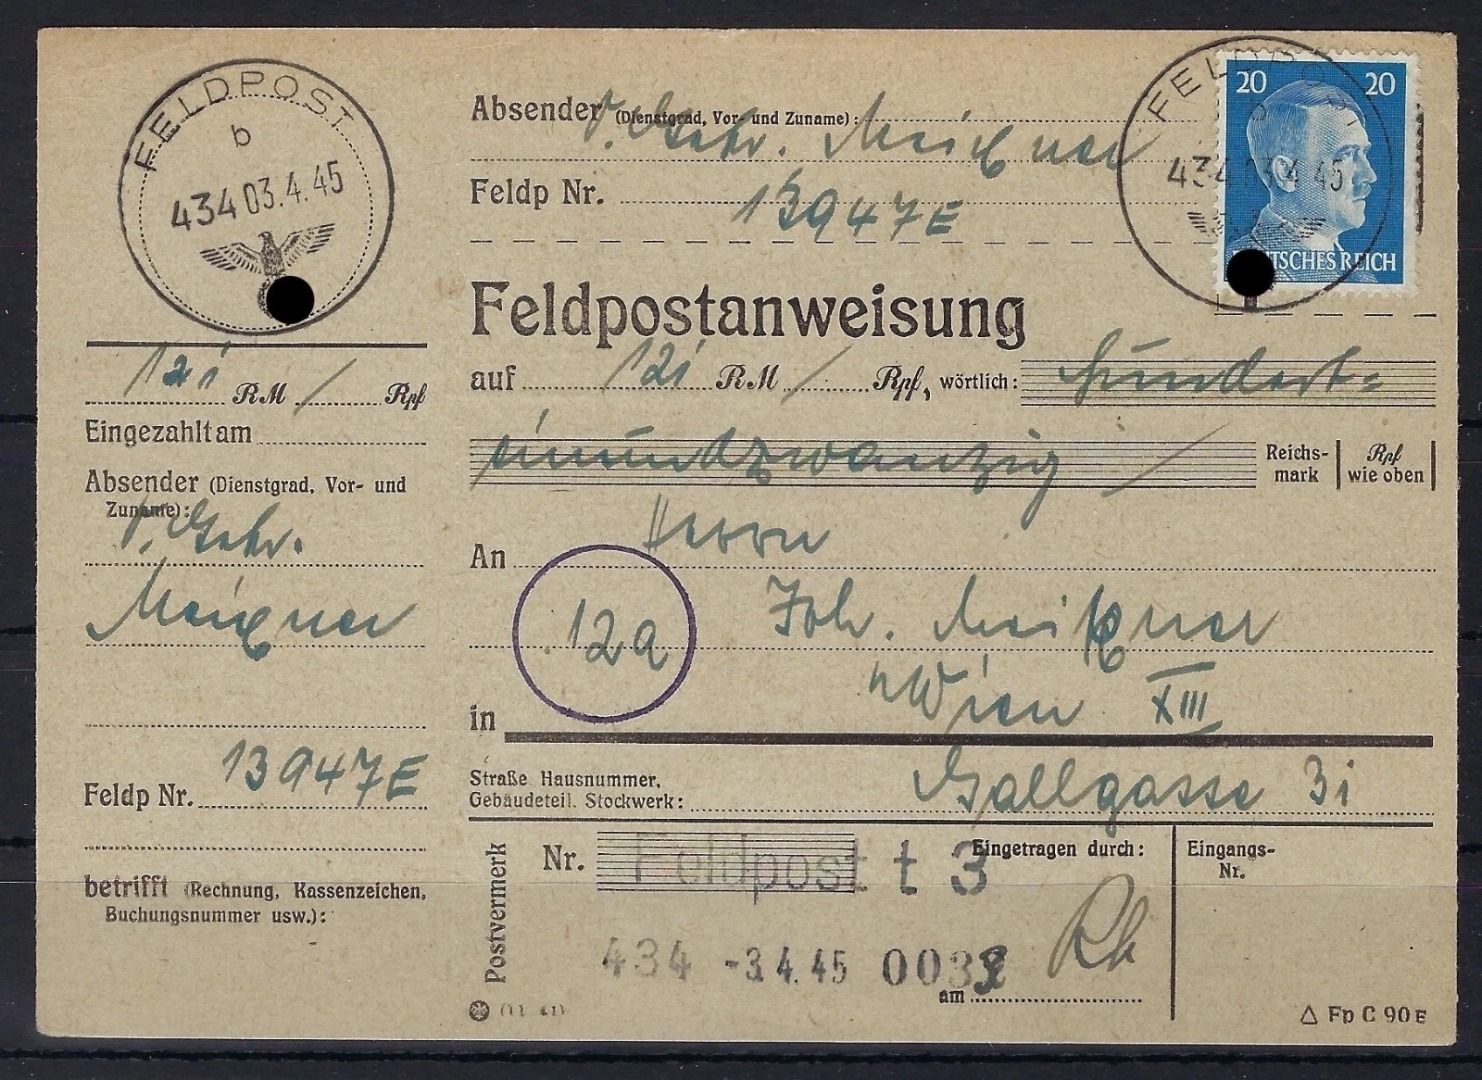 FELDPOST
b
434 03.4.45
121 RM / Rpf
Eingezahlt am
Absender (Dienstgrad, Vor- und
Zuname):
Meixner
Feldp Nr. 13947E
betrifft (Rechnung, Kassenzeichen,
Buchungsnummer usw.):
Absender (Dienstgrad, Vor- und Zuname): Meixner
Feldp Nr. 13947E
FELDPOST
434 03.4.45
20 20
DEUTSCHES REICH
Feldpostanweisung
auf 121 RM / Rpf, wörtlich: hundert=
einundzwanzig / Reichs- Rpf
mark wie oben
An Herrn
12a Joh. Meixner
in Wien XIII
Straße Hausnummer,
Gebäudeteil. Stockwerk: Gallgasse 31
Postvermerk
Nr. Feldpost t 3
Eingetragen durch:
Eingangs-
Nr.
434 -3.4.45
am
△ Fp C 90 E